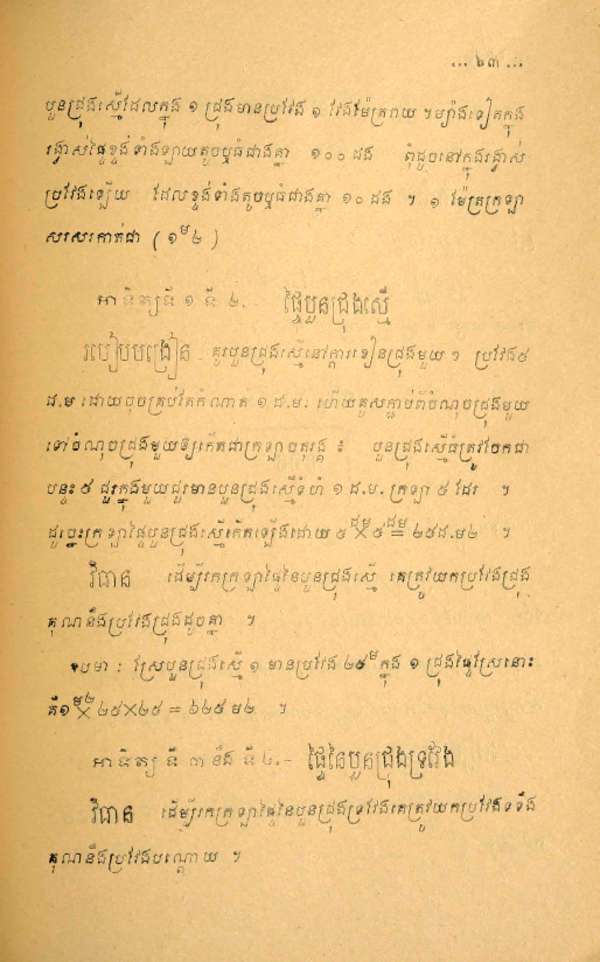 ... ៦៣ ...
បួនជ្រុងស្មើដែលក្នុង ១ ជ្រុងមានប្រវែង ១ វែងម៉ែត្ររាយ ។ ម្យ៉ាងទៀតក្នុង
រង្វាស់ផ្ទៃខ្នង់ទាំងឡាយតូចឬធំជាងគ្នា ១០០ ដង ពុំដូចនៅក្នុងរង្វាស់
ប្រវែងឡើយ ដែលខ្នង់ទាំងតូចឬធំជាងគ្នា ១០ ដង ។ ១ ម៉ែត្រក្រឡា
សរសេរកាត់ជា ( ១ម២ )
អាទិត្យទី ១ ទី ២.- ផ្ទៃបួនជ្រុងស្មើ
របៀបបង្រៀន - គូរបួនជ្រុងស្មើនៅក្តារខៀនជ្រុងមួយៗ ប្រវែង៥
ដ.ម ដោយចុចគ្រប់តែកំណាត ១ ដ.ម. ហើយគូសភ្ជាប់ពីចំណុចជ្រុងមួយ
ទៅចំណុចជ្រុងមួយឱ្យកើតជាក្រឡាចតុរង្គ ៖ បួនជ្រុងស្មើធំត្រូវចែកជា
បន្ទះ ៥ ជួរក្នុងមួយជួរមានបួនជ្រុងស្មើទំហំ ១ ដ.ម. ក្រឡា ៥ ដែរ ។
ដូច្នេះក្រឡាផ្ទៃបួនជ្រុងស្មើកើតឡើងដោយ ៥ដម × ៥ដម = ២៥ដ.ម២ ។
វិធាន ដើម្បីរកក្រឡាផ្ទៃនៃបួនជ្រុងស្មើ គេត្រូវយកប្រវែងជ្រុង
គុណនឹងប្រវែងជ្រុងដូចគ្នា ។
ឧបមា : ស្រែបួនជ្រុងស្មើ ១ មានប្រវែង ២៥ម ក្នុង ១ ជ្រុងផ្ទៃស្រែនោះ
គឺ១ម២ × ២៥×២៥ = ៦២៥ ម២ ។
អាទិត្យ ទី ៣ នឹង ទី ៤.- ផ្ទៃនៃបួនជ្រុងទ្រវែង
វិធាន ដើម្បីរកក្រឡាផ្ទៃនៃបួនជ្រុងទ្រវែងគេត្រូវយកប្រវែងទទឹង
គុណនឹងប្រវែងបណ្តោយ ។